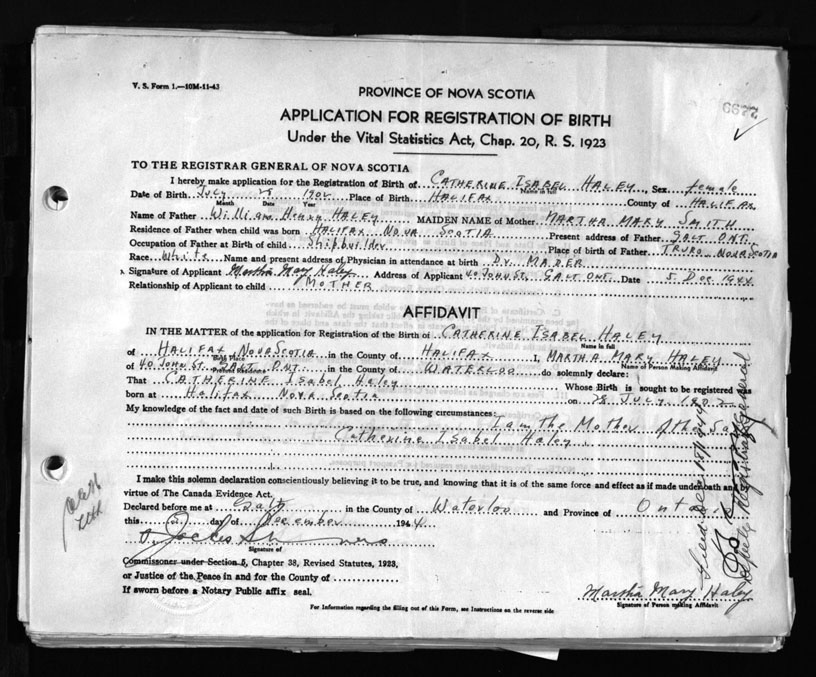 V. S. Form 1.—10M-11-43
PROVINCE OF NOVA SCOTIA
APPLICATION FOR REGISTRATION OF BIRTH
Under the Vital Statistics Act, Chap. 20, R. S. 1923
TO THE REGISTRAR GENERAL OF NOVA SCOTIA
I hereby make application for the Registration of Birth of CATHERINE ISABEL HALEY, Sex female
Name in full
Date of Birth July 28 1902 Place of Birth HALIFAX County of HALIFAX
Month Date Year
Name of Father William Henry HALEY MAIDEN NAME of Mother MARTHA MARY SMITH
Residence of Father when child was born HALIFAX NOVA SCOTIA Present address of Father GALT ONT.
Occupation of Father at Birth of child Shipbuilder Place of birth of Father TRURO NOVA SCOTIA
Race White Name and present address of Physician in attendance at birth DR. MADER
Signature of Applicant Martha Mary Haley Address of Applicant 40 JOHN ST. GALT ONT Date 5 Dec 1944
Relationship of Applicant to child MOTHER
AFFIDAVIT
IN THE MATTER of the application for Registration of the Birth of CATHERINE ISABEL HALEY
Name in full
of HALIFAX NOVA SCOTIA in the County of HALIFAX I, MARTHA MARY HALEY
Birth Place Name of Person Making Affidavit
of 40 JOHN ST. GALT ONT. in the County of WATERLOO do solemnly declare:
Present Residence
That CATHERINE Isabel Haley Whose Birth is sought to be registered was
born at Halifax Nova Scotia on 28 July 1902
My knowledge of the fact and date of such Birth is based on the following circumstances:
I am the Mother of the Said
Catherine Isabel Haley
I make this solemn declaration conscientiously believing it to be true, and knowing that it is of the same force and effect as if made under oath and
virtue of The Canada Evidence Act.
Declared before me at Galt in the County of Waterloo and Province of Ontario
this day of December 1944
Signature of
Commissoner under Section 5, Chapter 38, Revised Statutes, 1923,
or Justice of the Peace in and for the County of
If sworn before a Notary Public affix seal.
Martha Mary Haley
Signature of Person making Affidavit
For Information regarding the filling out of this Form, see Instructions on the reverse side